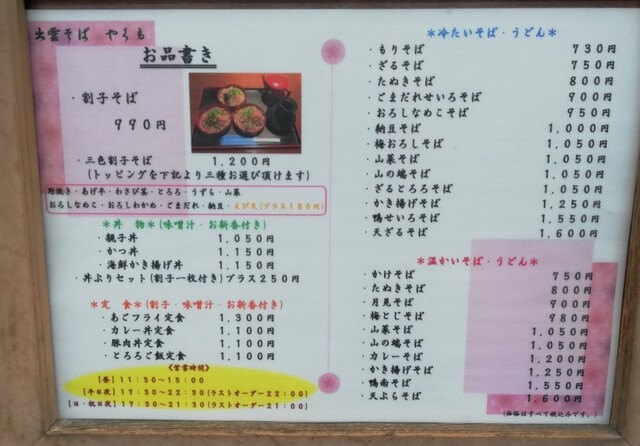 出雲そば やくも
お品書き
・割子そば
990円
・三色割子そば 1,200円
(トッピングを下記より三種お選び頂けます)
野焼き・あげ平・わさび茎・とろろ・うずら・山菜
おろしなめこ・おろしわかめ・ごまだれ・納豆・えび天(プラス180円)
*丼 物*(味噌汁・お新香付き)
・親子丼 1,050円
・かつ丼 1,150円
・海鮮かき揚げ丼 1,150円
・丼ぶりセット(割子一枚付き)プラス250円
*定 食*(割子・味噌汁・お新香付き)
・あごフライ定食 1,300円
・カレー丼定食 1,100円
・豚肉丼定食 1,100円
・とろろご飯定食 1,100円
《営業時間》
【昼】11:30~15:00
【平日夜】17:30~22:30(ラストオーダー22:00)
【日・祝日夜】17:30~21:30(ラストオーダー21:00)
*冷たいそば・うどん*
・もりそば 730円
・ざるそば 750円
・たぬきそば 800円
・ごまだれせいろそば 900円
・おろしなめこそば 950円
・納豆そば 1,000円
・梅おろしそば 1,050円
・山菜そば 1,050円
・山の端そば 1,050円
・ざるとろろそば 1,050円
・かき揚げそば 1,250円
・鴨せいろそば 1,550円
・天ざるそば 1,600円
*温かいそば・うどん*
・かけそば 750円
・たぬきそば 800円
・月見そば 900円
・梅とじそば 980円
・山菜そば 1,050円
・山の端そば 1,050円
・カレーそば 1,200円
・かき揚げそば 1,250円
・鴨南そば 1,550円
・天ぷらそば 1,600円
(価格はすべて税込みです。)